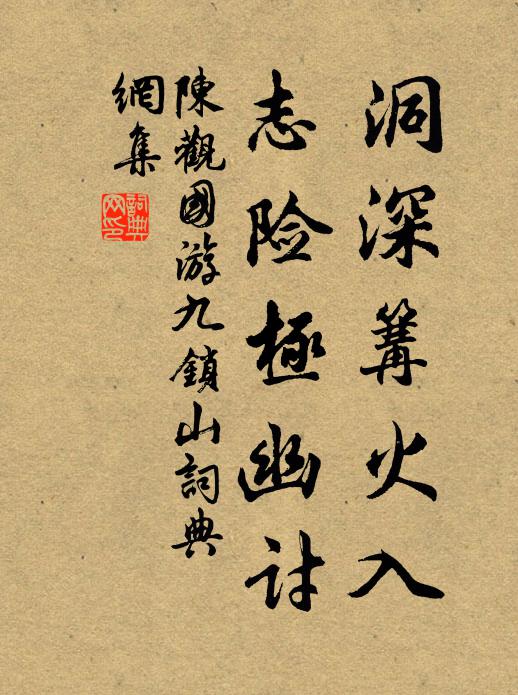 洞深篝火入
志险極幽討
陳觀國游九鎖山詞典
網集
詞典
网印